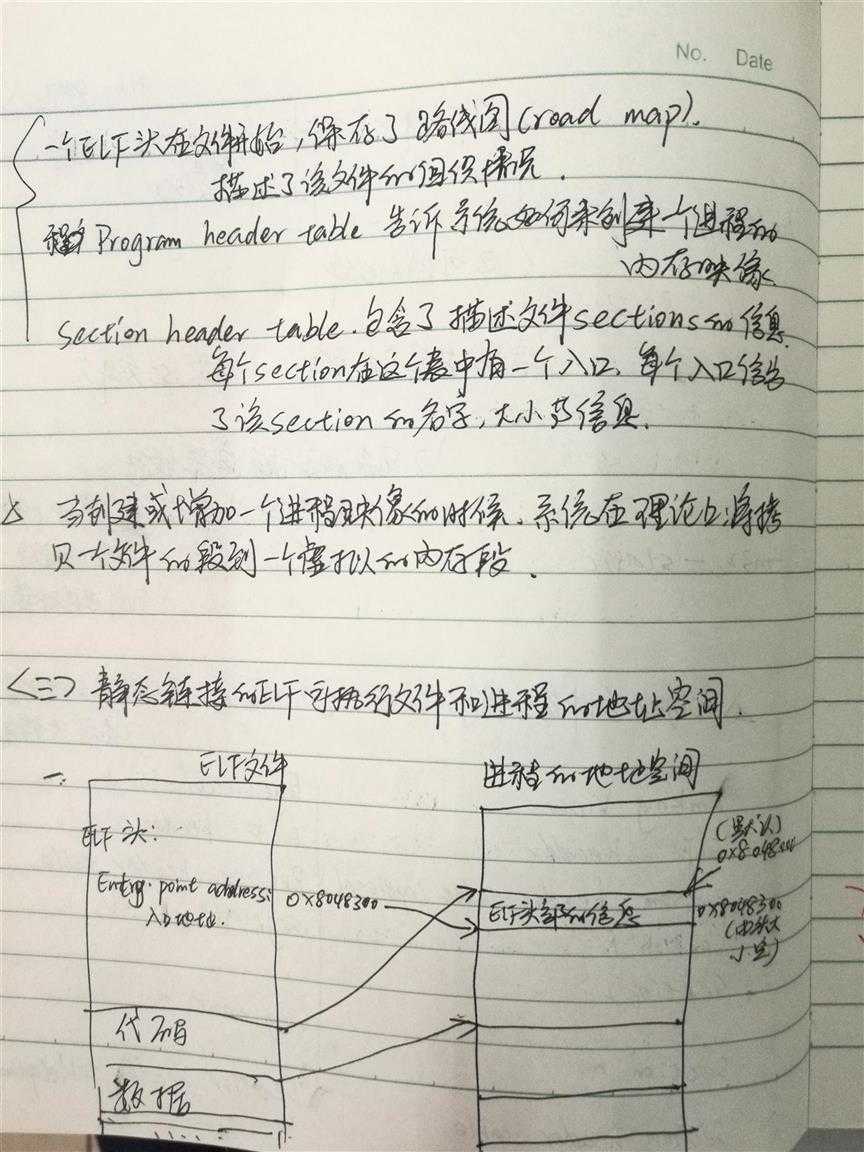 No. Date
一个ELF头在文件开始,保存了路线图(road map).
描述了该文件的组织情况.
Program header table 告诉系统如何来创建一个进程的
内存映像
section header table.包含了描述文件sections的信息.
每个section在这个表中有一个入口.每个入口给出
了该section的名字,大小等信息.
当创建或增加一个进程映像的时候.系统在理论上将拷
贝一个文件的段到一个虚拟的内存段.
<三> 静态链接的ELF可执行文件和进程的地址空间.
一. ELF文件 进程的地址空间
ELF头:
(默认)
0x8048
Entry point address: 0x8048300
入口地址.
ELF头部的信息
0x8048300
(由头大
小定)
代码
数据
.....